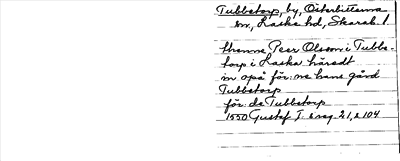 Tubbetorp, by, Österbitterna
sn, Laske hd, Skarab. l
thenne Peer Olsson i Tubbe-
torp i Laska häradt
in opå för:ne hans gård
Tubbetorp
för:de Tubbetorp
1550 Gustaf I:s reg. 21, s 104